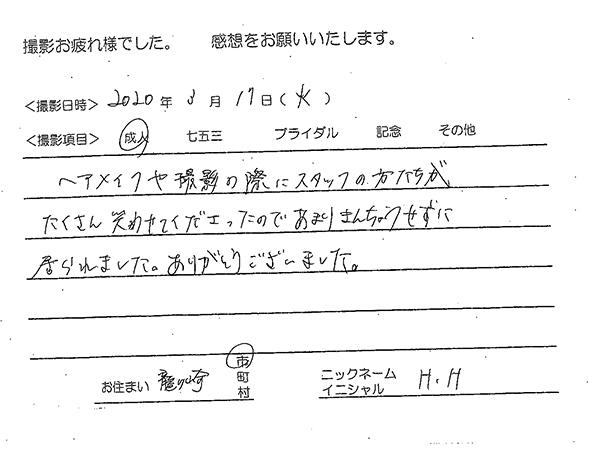 撮影お疲れ様でした。 感想をお願いいたします。
<撮影日時> 2020 年 3 月 17 日 ( 火 )
<撮影項目> 成人 七五三 ブライダル 記念 その他
ヘアメイクや撮影の際にスタッフの方たちが
たくさん笑わせてくださったのであまりきんちょうせずに
居られました。ありがとうございました。
お住まい 龍ヶ崎 市 町 村
ニックネーム イニシャル H.H